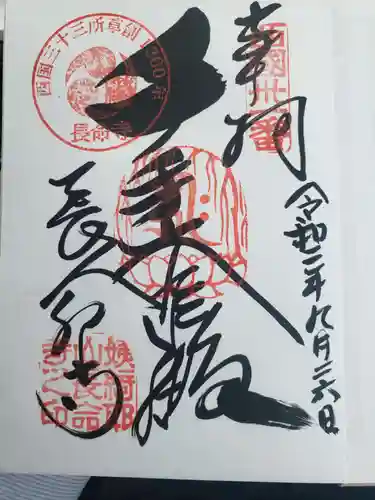 奉拝
西國卅一番
令和二年九月二六日
西国三十三所草創1300年
長命寺
長命寺
姨綺耶山長命寺之印